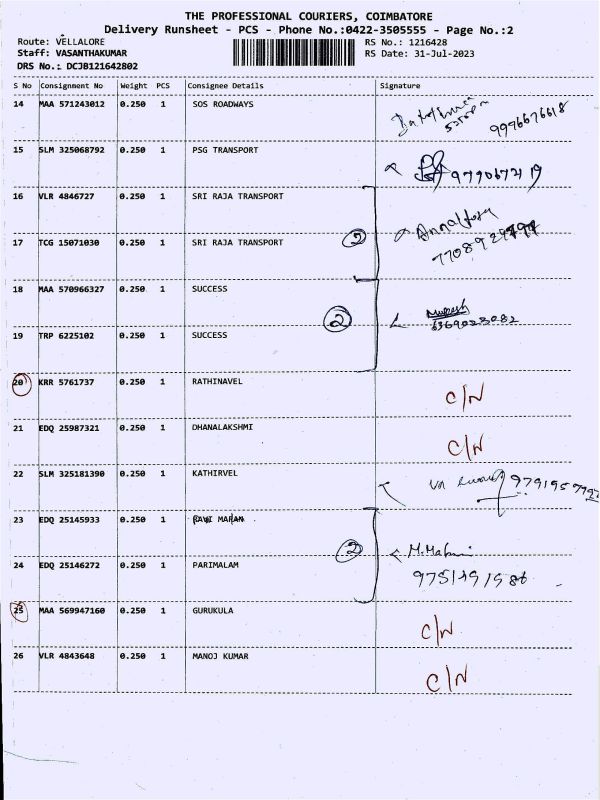 THE PROFESSIONAL COURIERS, COIMBATORE
Delivery Runsheet - PCS - Phone No.:0422-3505555 - Page No.:2
Route: VELLALORE
RS No.: 1216428
Staff: VASANTHAKUMAR
RS Date: 31-Jul-2023
DRS No.: DCJB121642802
S No Consignment No Weight PCS Consignee Details Signature
14 MAA 571243012 0.250 1 SOS ROADWAYS
9976676618
15 SLM 325068792 0.250 1 PSG TRANSPORT
16 VLR 4846727 0.250 1 SRI RAJA TRANSPORT
17 TCG 15071030 0.250 1 SRI RAJA TRANSPORT 2
18 MAA 570966327 0.250 1 SUCCESS
2
19 TRP 6225102 0.250 1 SUCCESS
20 KRR 5761737 0.250 1 RATHINAVEL C/N
21 EDQ 25987321 0.250 1 DHANALAKSHMI C/N
22 SLM 325181390 0.250 1 KATHIRVEL
23 EDQ 25145933 0.250 1
2
24 EDQ 25146272 0.250 1 PARIMALAM
25 MAA 569947160 0.250 1 GURUKULA C/N
26 VLR 4843648 0.250 1 MANOJ KUMAR C/N